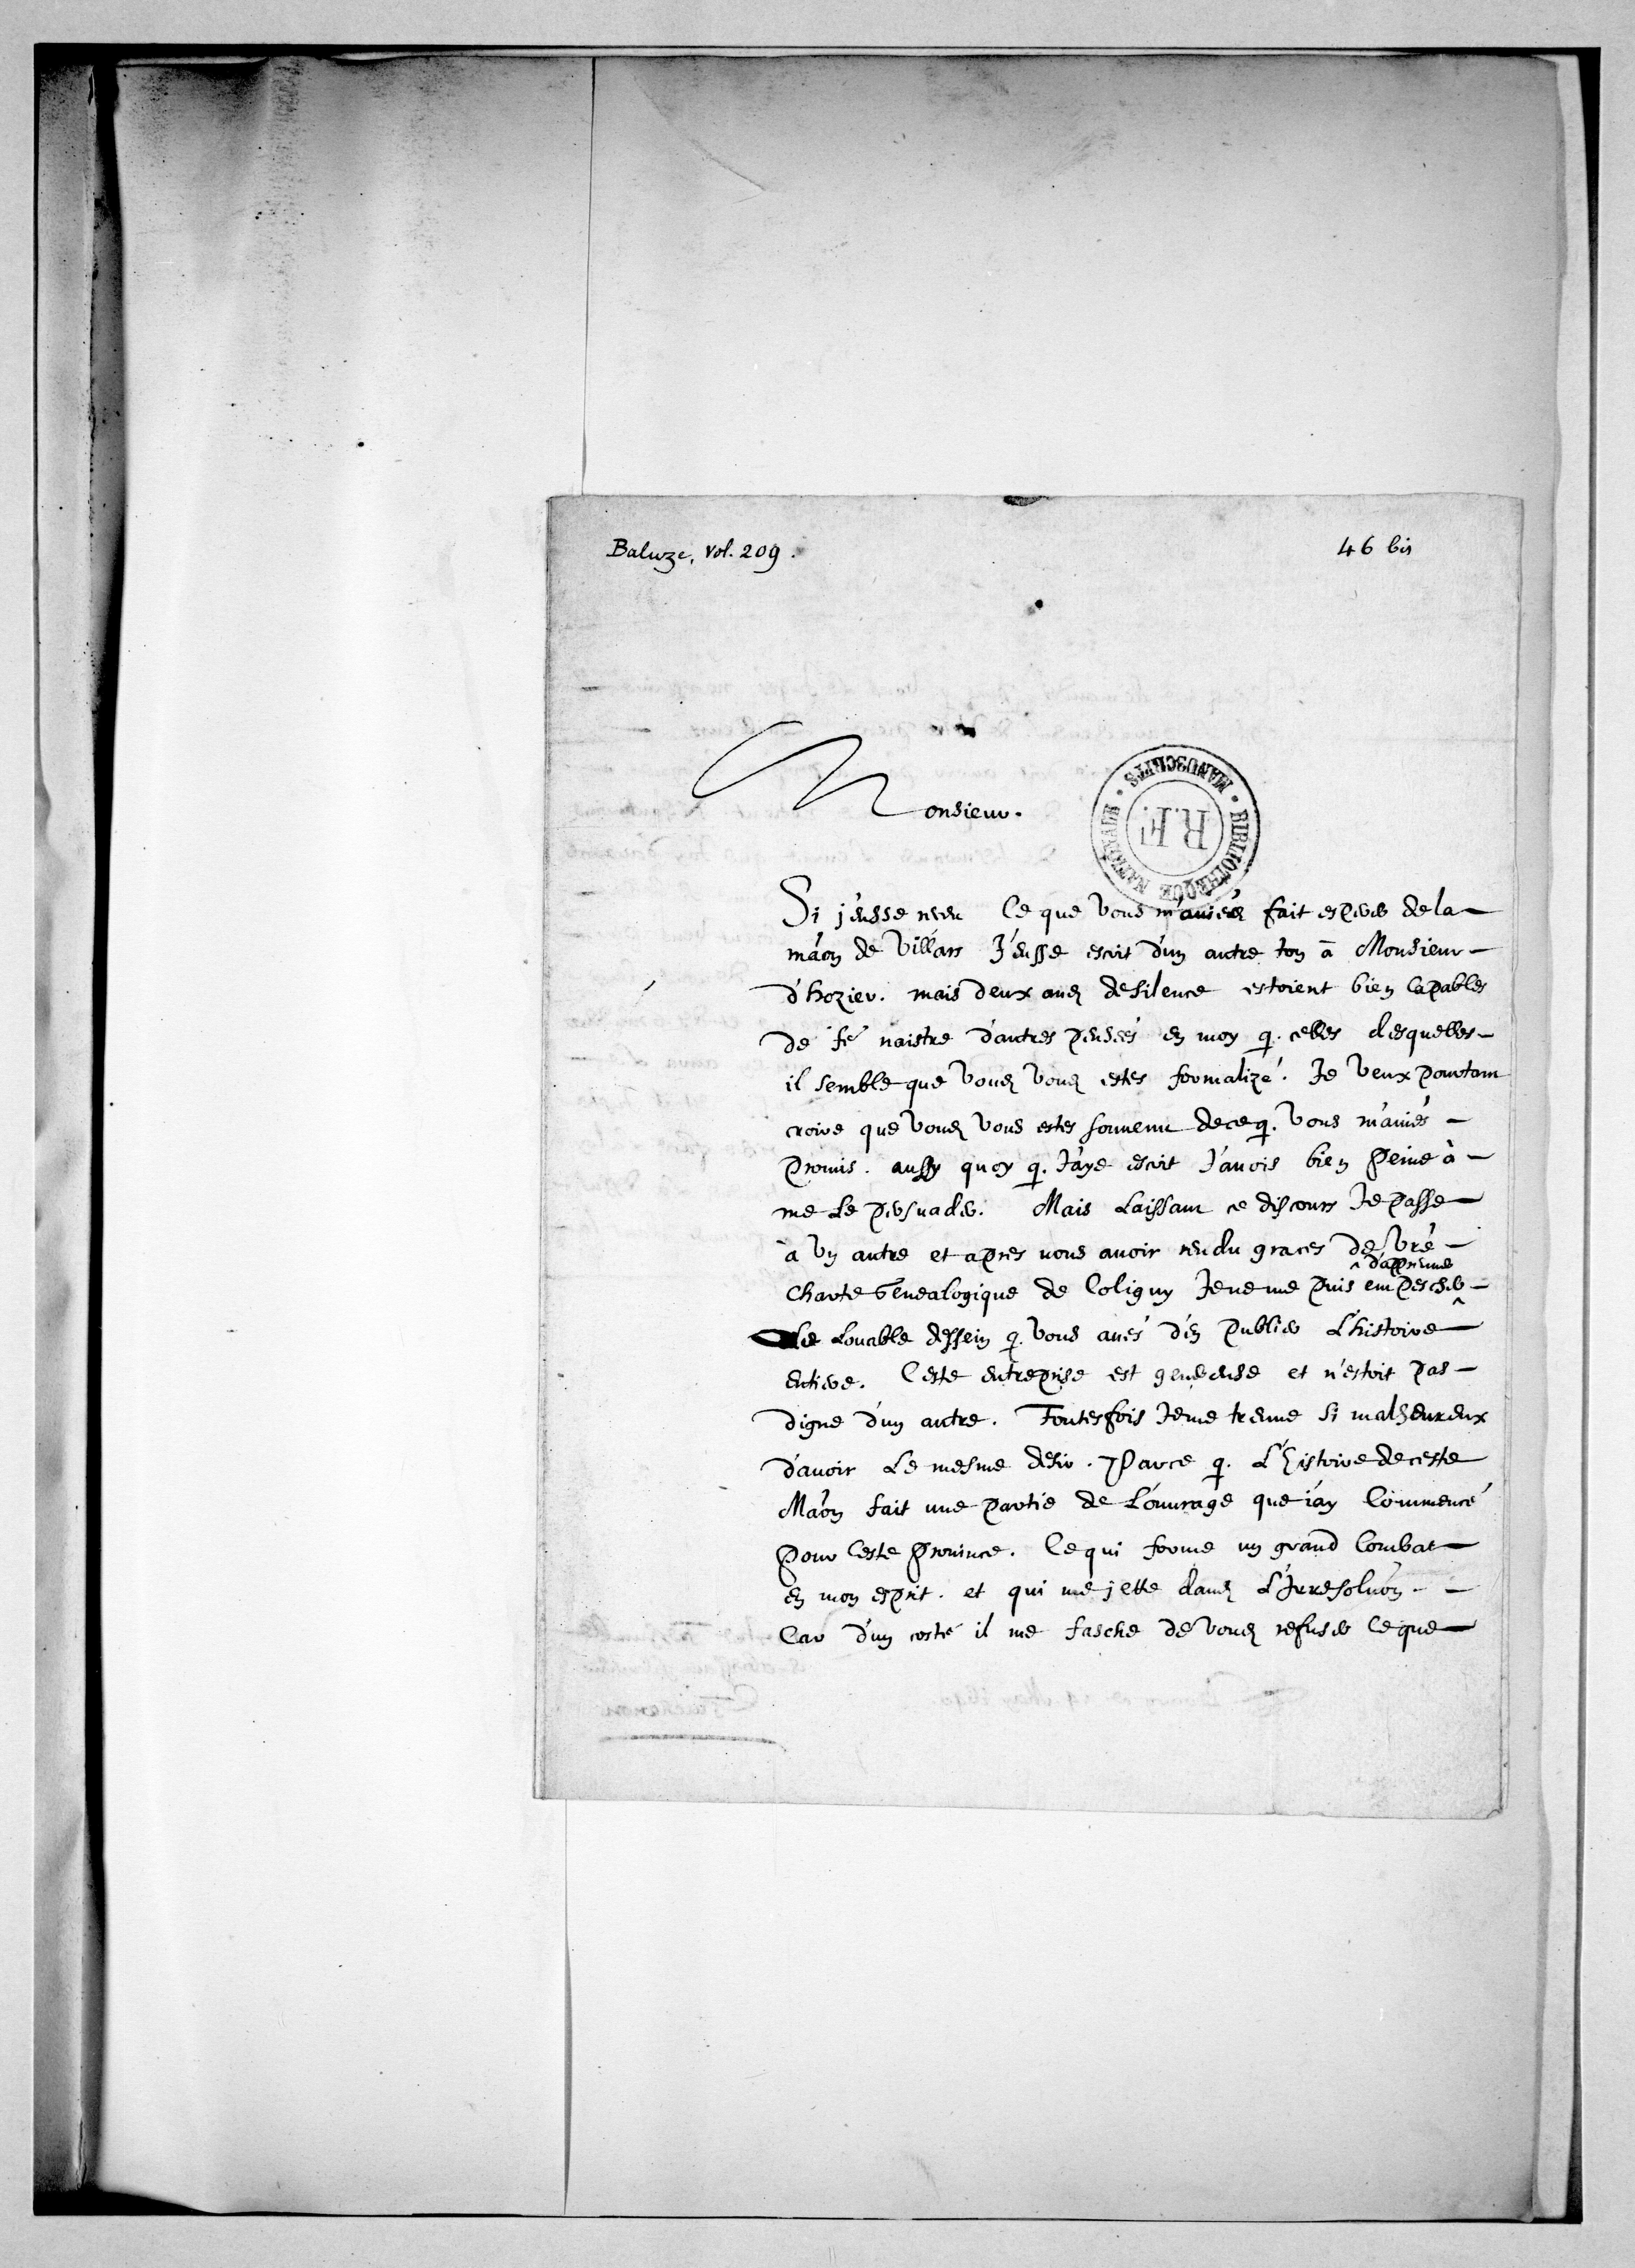 Baluze, vol. 209.
46 bis
Monsieur.
BIBLIOTHEQUE NATIONALE • MANUSCRITS •
R.F.
Si j'eusse receu Ce que vous m'auiéz fait esperer de la
māon de Villars J'eusse escrit d'un autre ton à Monsieur
d'hozier. mais deux ans de silence estoient bien capables
de fē naistre d'autres pensées en moy q. celles desquelles
il semble que vous vous estes formalizé. Je veux pourtant
croire que vous vous estes souuenu de ce q. vous m'auiés
promis. aussy quoy q. J'aye escrit J'auois bien peine à
me Le persuader. Mais Laissant ce discours Je passe
à vn autre et apres vous auoir rendu graces de vrē
^ d'appreuuer
Charte Genealogique de Coligny Je ne me puis empescher ^
Le Louable dessein q. vous aués d'en publier L'histoire
entiere. Ceste entreprise est genereuse et n'estoit pas
digne d'un autre. Toutesfois Je me treuue si malheureux
d'auoir Le mesme desir. Parce q. L'Histoire de ceste
Māon fait une partie de L'ouurage que i'ay Commencé
pour Ceste Prouince. Ce qui forme un grand Combat
en mon esprit. et qui me jette dans L'Irresolūon.
Car d'un costé il me fasche de vous refuser Ce que